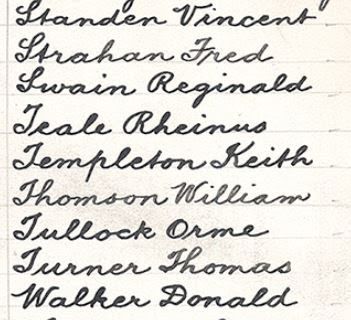 Standen Vincent
Strahan Fred
Swain Reginald
Teale Rheinus
Templeton Keith
Thomson William
Tullock Orme
Turner Thomas
Walker Donald